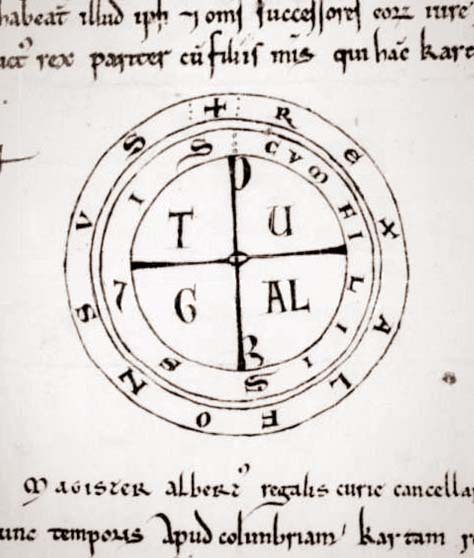 habeat illud ipsi 7 omnes successores eorum iure
rex pariter cū filiis mīs qui hāc kart
+ REX ALFONSVS
CVM FILIIS SVIS
P
T U
G AL
R
MAGISTER albert' regalis curie cancella
unc temporis apud colunbriam kartam